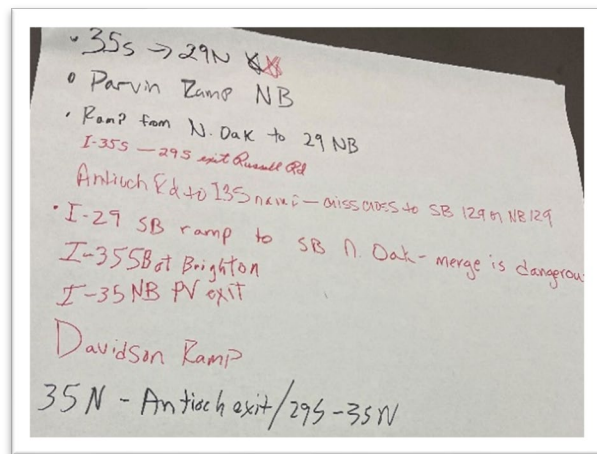 • 35s → 29N
• Parvin Ramp NB
• Ramp from N. Oak to 29 NB
I-35S — 29S exit Russell Rd
Antioch Rd to I35 – criss cross to SB I29 or NB I29
• I-29 SB ramp to SB N. Oak - merge is dangerou
I-35SB at Brighton
I-35 NB PV exit
Davidson Ramp
35N - Antioch exit/29S-35N